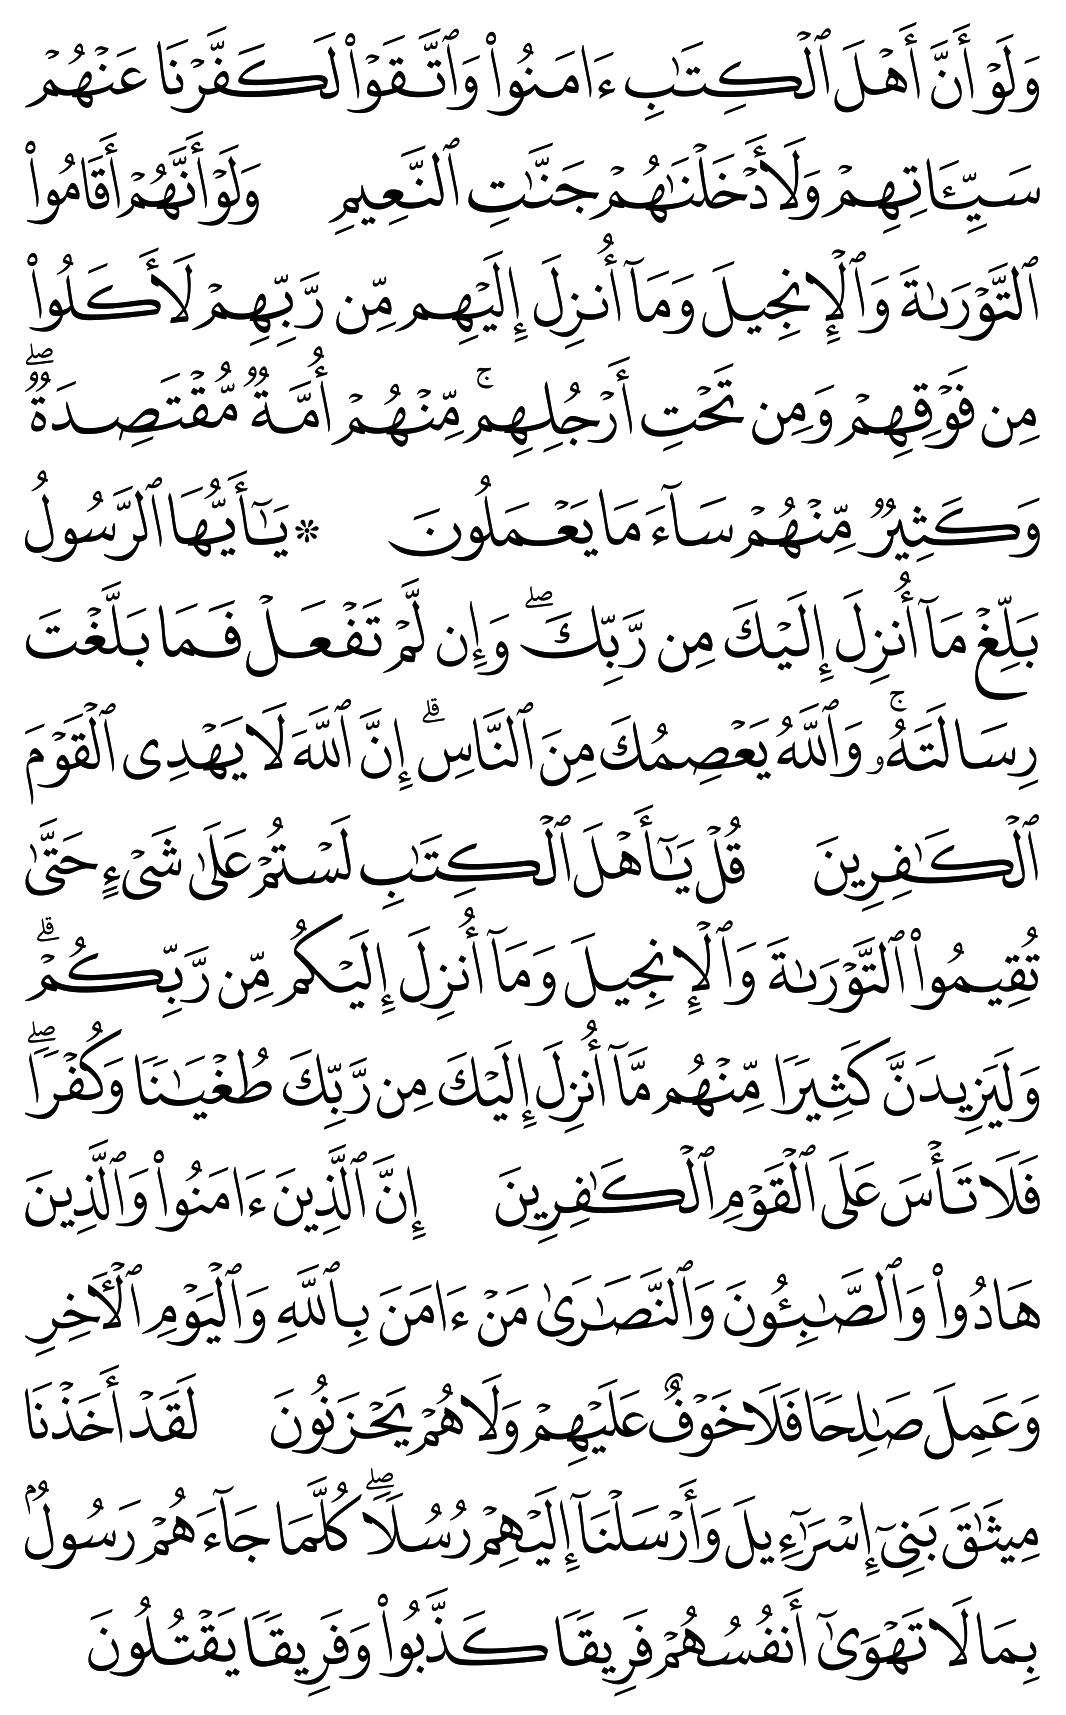 وَلَوۡ أَنَّ أَهۡلَ ٱلۡكِتَٰبِ ءَامَنُواْ وَٱتَّقَوۡاْ لَكَفَّرۡنَا عَنۡهُمۡ
سَيِّـَٔاتِهِمۡ وَلَأَدۡخَلۡنَٰهُمۡ جَنَّٰتِ ٱلنَّعِيمِ وَلَوۡ أَنَّهُمۡ أَقَامُواْ
ٱلتَّوۡرَىٰةَ وَٱلۡإِنجِيلَ وَمَآ أُنزِلَ إِلَيۡهِم مِّن رَّبِّهِمۡ لَأَكَلُواْ
مِن فَوۡقِهِمۡ وَمِن تَحۡتِ أَرۡجُلِهِمۚ مِّنۡهُمۡ أُمَّةٞ مُّقۡتَصِدَةٞۖ
وَكَثِيرٞ مِّنۡهُمۡ سَآءَ مَا يَعۡمَلُونَ ۞يَٰٓأَيُّهَا ٱلرَّسُولُ
بَلِّغۡ مَآ أُنزِلَ إِلَيۡكَ مِن رَّبِّكَۖ وَإِن لَّمۡ تَفۡعَلۡ فَمَا بَلَّغۡتَ
رِسَالَتَهُۥۚ وَٱللَّهُ يَعۡصِمُكَ مِنَ ٱلنَّاسِۗ إِنَّ ٱللَّهَ لَا يَهۡدِي ٱلۡقَوۡمَ
ٱلۡكَٰفِرِينَ قُلۡ يَٰٓأَهۡلَ ٱلۡكِتَٰبِ لَسۡتُمۡ عَلَىٰ شَيۡءٍ حَتَّىٰ
تُقِيمُواْ ٱلتَّوۡرَىٰةَ وَٱلۡإِنجِيلَ وَمَآ أُنزِلَ إِلَيۡكُم مِّن رَّبِّكُمۡۗ
وَلَيَزِيدَنَّ كَثِيرٗا مِّنۡهُم مَّآ أُنزِلَ إِلَيۡكَ مِن رَّبِّكَ طُغۡيَٰنٗا وَكُفۡرٗاۖ
فَلَا تَأۡسَ عَلَى ٱلۡقَوۡمِ ٱلۡكَٰفِرِينَ إِنَّ ٱلَّذِينَ ءَامَنُواْ وَٱلَّذِينَ
هَادُواْ وَٱلصَّٰبِـُٔونَ وَٱلنَّصَٰرَىٰ مَنۡ ءَامَنَ بِٱللَّهِ وَٱلۡيَوۡمِ ٱلۡأٓخِرِ
وَعَمِلَ صَٰلِحٗا فَلَا خَوۡفٌ عَلَيۡهِمۡ وَلَا هُمۡ يَحۡزَنُونَ لَقَدۡ أَخَذۡنَا
مِيثَٰقَ بَنِيٓ إِسۡرَٰٓءِيلَ وَأَرۡسَلۡنَآ إِلَيۡهِمۡ رُسُلٗاۖ كُلَّمَا جَآءَهُمۡ رَسُولُۢ
بِمَا لَا تَهۡوَىٰٓ أَنفُسُهُمۡ فَرِيقٗا كَذَّبُواْ وَفَرِيقٗا يَقۡتُلُونَ